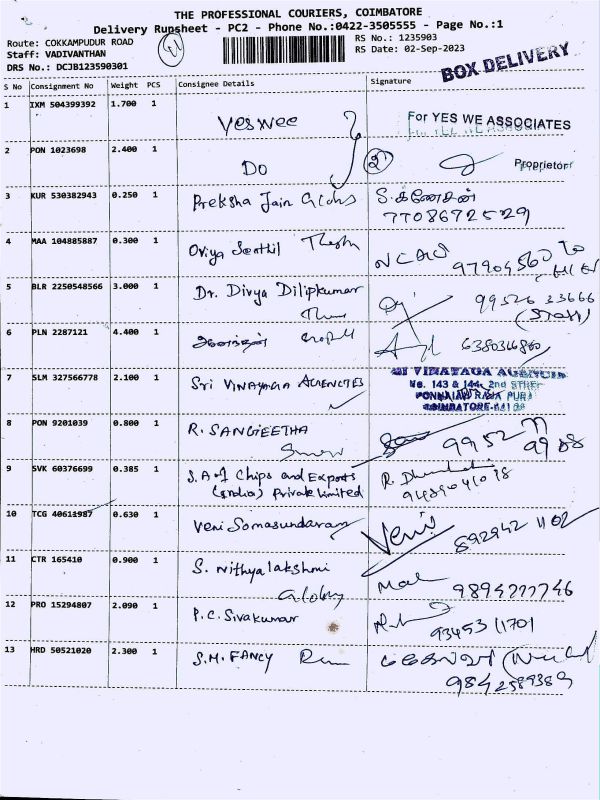 THE PROFESSIONAL COURIERS, COIMBATORE
Delivery Runsheet - PC2 - Phone No.:0422-3505555 - Page No.:1
Route: COKKAMPUDUR ROAD
RS No.: 1235903
Staff: VADIVANTHAN
RS Date: 02-Sep-2023
DRS No.: DCJB123590301
BOX DELIVERY
S No Consignment No Weight PCS Consignee Details Signature
1 IXM 504399392 1.700 1 For YES WE ASSOCIATES
2 PON 1023698 2.400 1 Do Proprietor
3 KUR 530382943 0.250 1 Preksha Jain S. கணேசன்
7708672529
4 MAA 104885887 0.300 1 Oviya Senthil
5 BLR 2250548566 3.000 1 Dr. Divya Dilipkumar 99526 33666
6 PLN 2287121 4.400 1
7 SLM 327566778 2.100 1 Sri VINAYAGA AGENCIES SRI VINAYAGA AGENCIES
No. 143 & 144, 2nd STREET
PONNAIAH RAJA PURAM
COIMBATORE
8 PON 9201039 0.800 1 R. SANGEETHA
9 SVK 60376699 0.385 1 S.A.J Chips and Exports
(India) Private Limited
10 TCG 40611987 0.630 1 Veni Somasundaram Veni 892942 1102
11 CTR 165410 0.900 1 S. Nithyalakshmi
9894277746
12 PRO 15294807 2.090 1 P.C. Sivakumar
9345311701
13 HRD 50521020 2.300 1 S.M. FANCY
9842589389